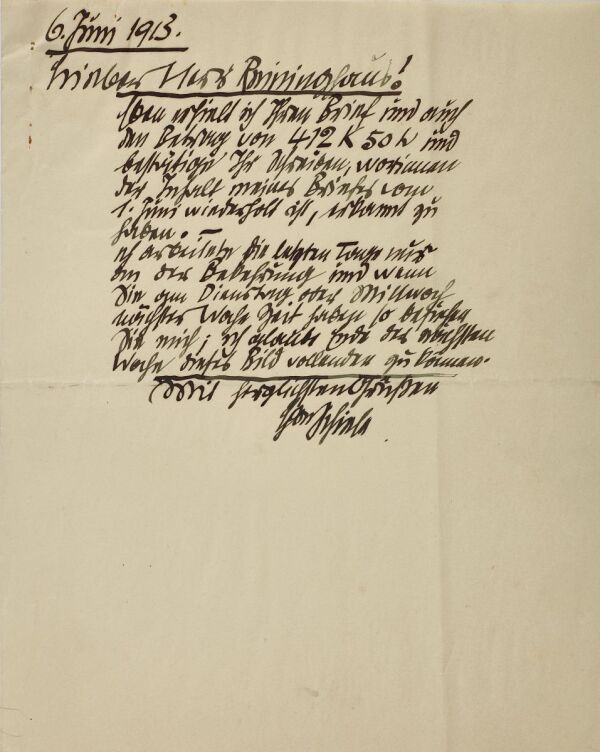 6. Juni 1913.
Lieber Herr Reininghaus!
Eben erhielt ich Ihren Brief und auch
den Betrag von 412 K 50 h und
bestätige Ihr Schreiben, worinnen
der Inhalt meines Briefes vom
1. Juni wiederholt ist, erkannt zu
haben. —
ich arbeitete die letzten Tage nur
an der Bekehrung und wenn
Sie am Dienstag oder Mittwoch
nächster Woche Zeit haben so besuchen
Sie mich; ich glaube Ende der nächsten
Woche dieses Bild vollenden zu können.
Mit herzlichsten Grüßen
Egon Schiele